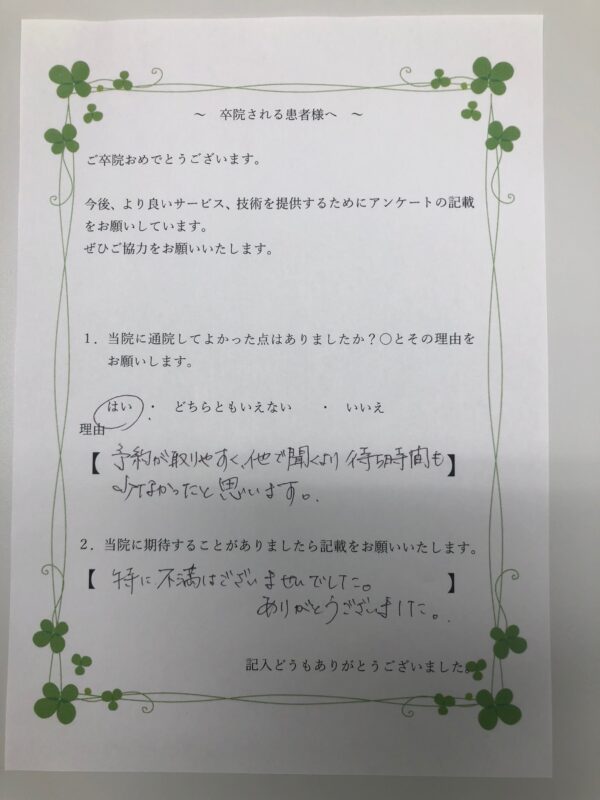 ～ 卒院される患者様へ ～
ご卒院おめでとうございます。
今後、より良いサービス、技術を提供するためにアンケートの記載
をお願いしています。
ぜひご協力をお願いいたします。
1．当院に通院してよかった点はありましたか？〇とその理由を
お願いします。
はい ・ どちらともいえない ・ いいえ
理由
【 予約が取りやすく、他で聞くより待ち時間も 】
少なかったと思います。
2．当院に期待することがありましたら記載をお願いいたします。
【 特に不満はございませんでした。 】
ありがとうございました。
記入どうもありがとうございました。